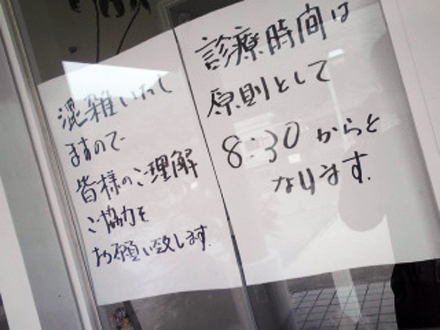 診療時間は
原則として
8:30からと
なります.
混雑いたし
ますので
皆様のご理解
ご協力を
お願い致します.